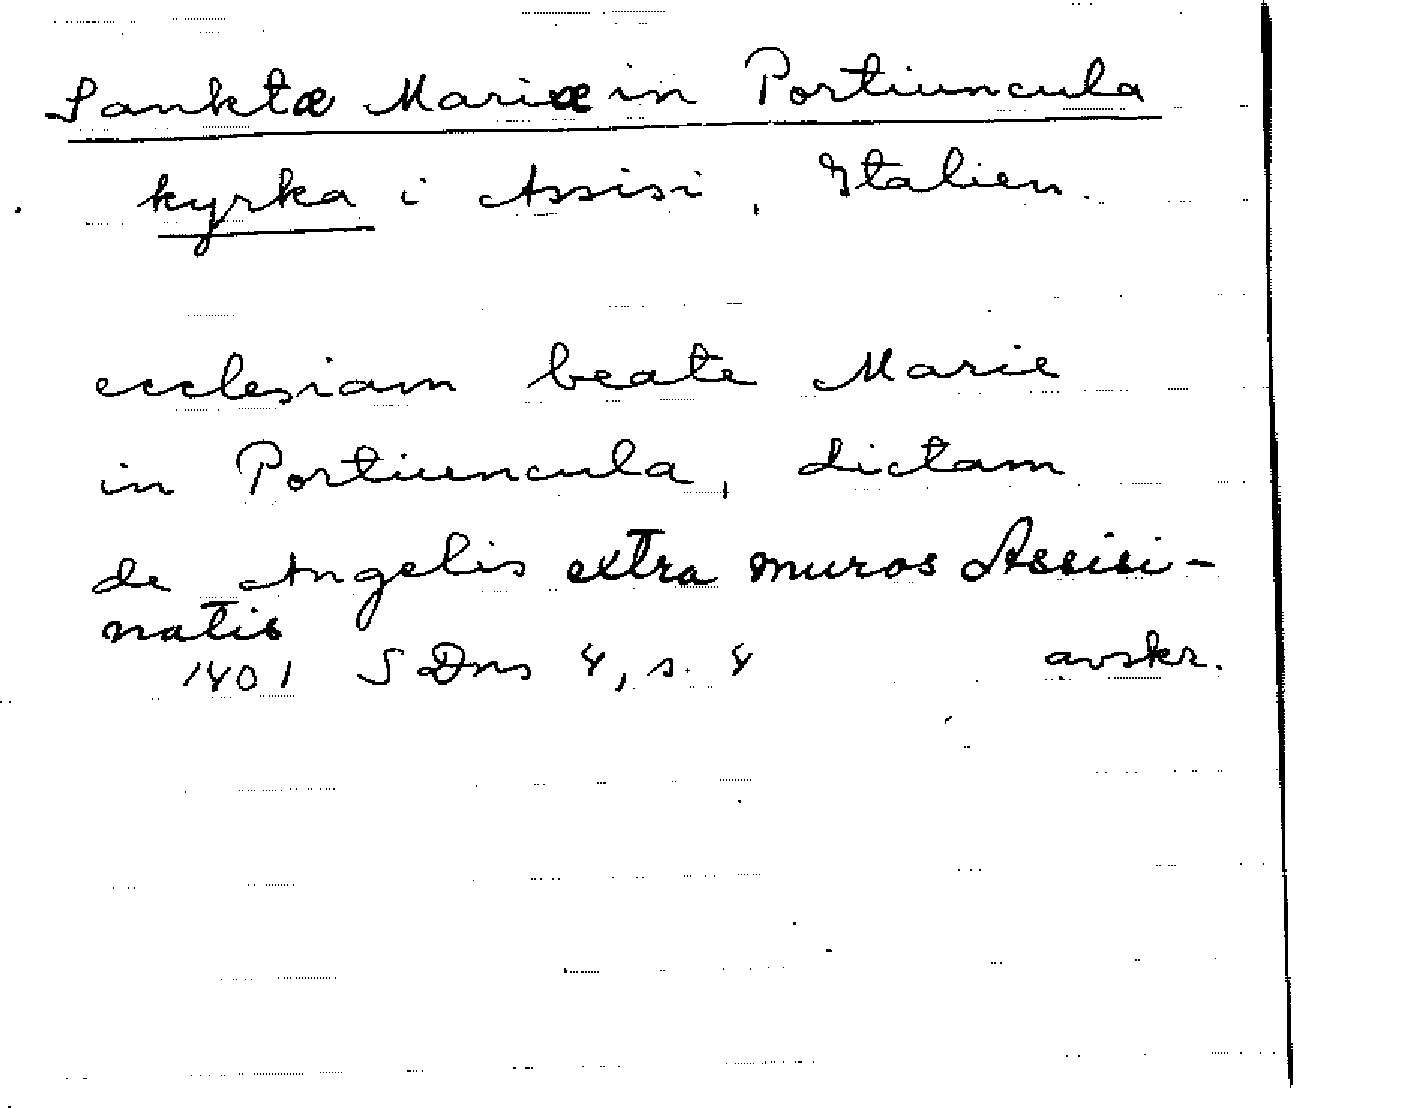 Sanktæ Mariæ in Portiuncula
kyrka i Assisi, Italien.
ecclesiam beate Marie
in Portiuncula, dictam
de Angelis extra muros Assisi-
natis
1401 SDns 4, s. 4 avskr.